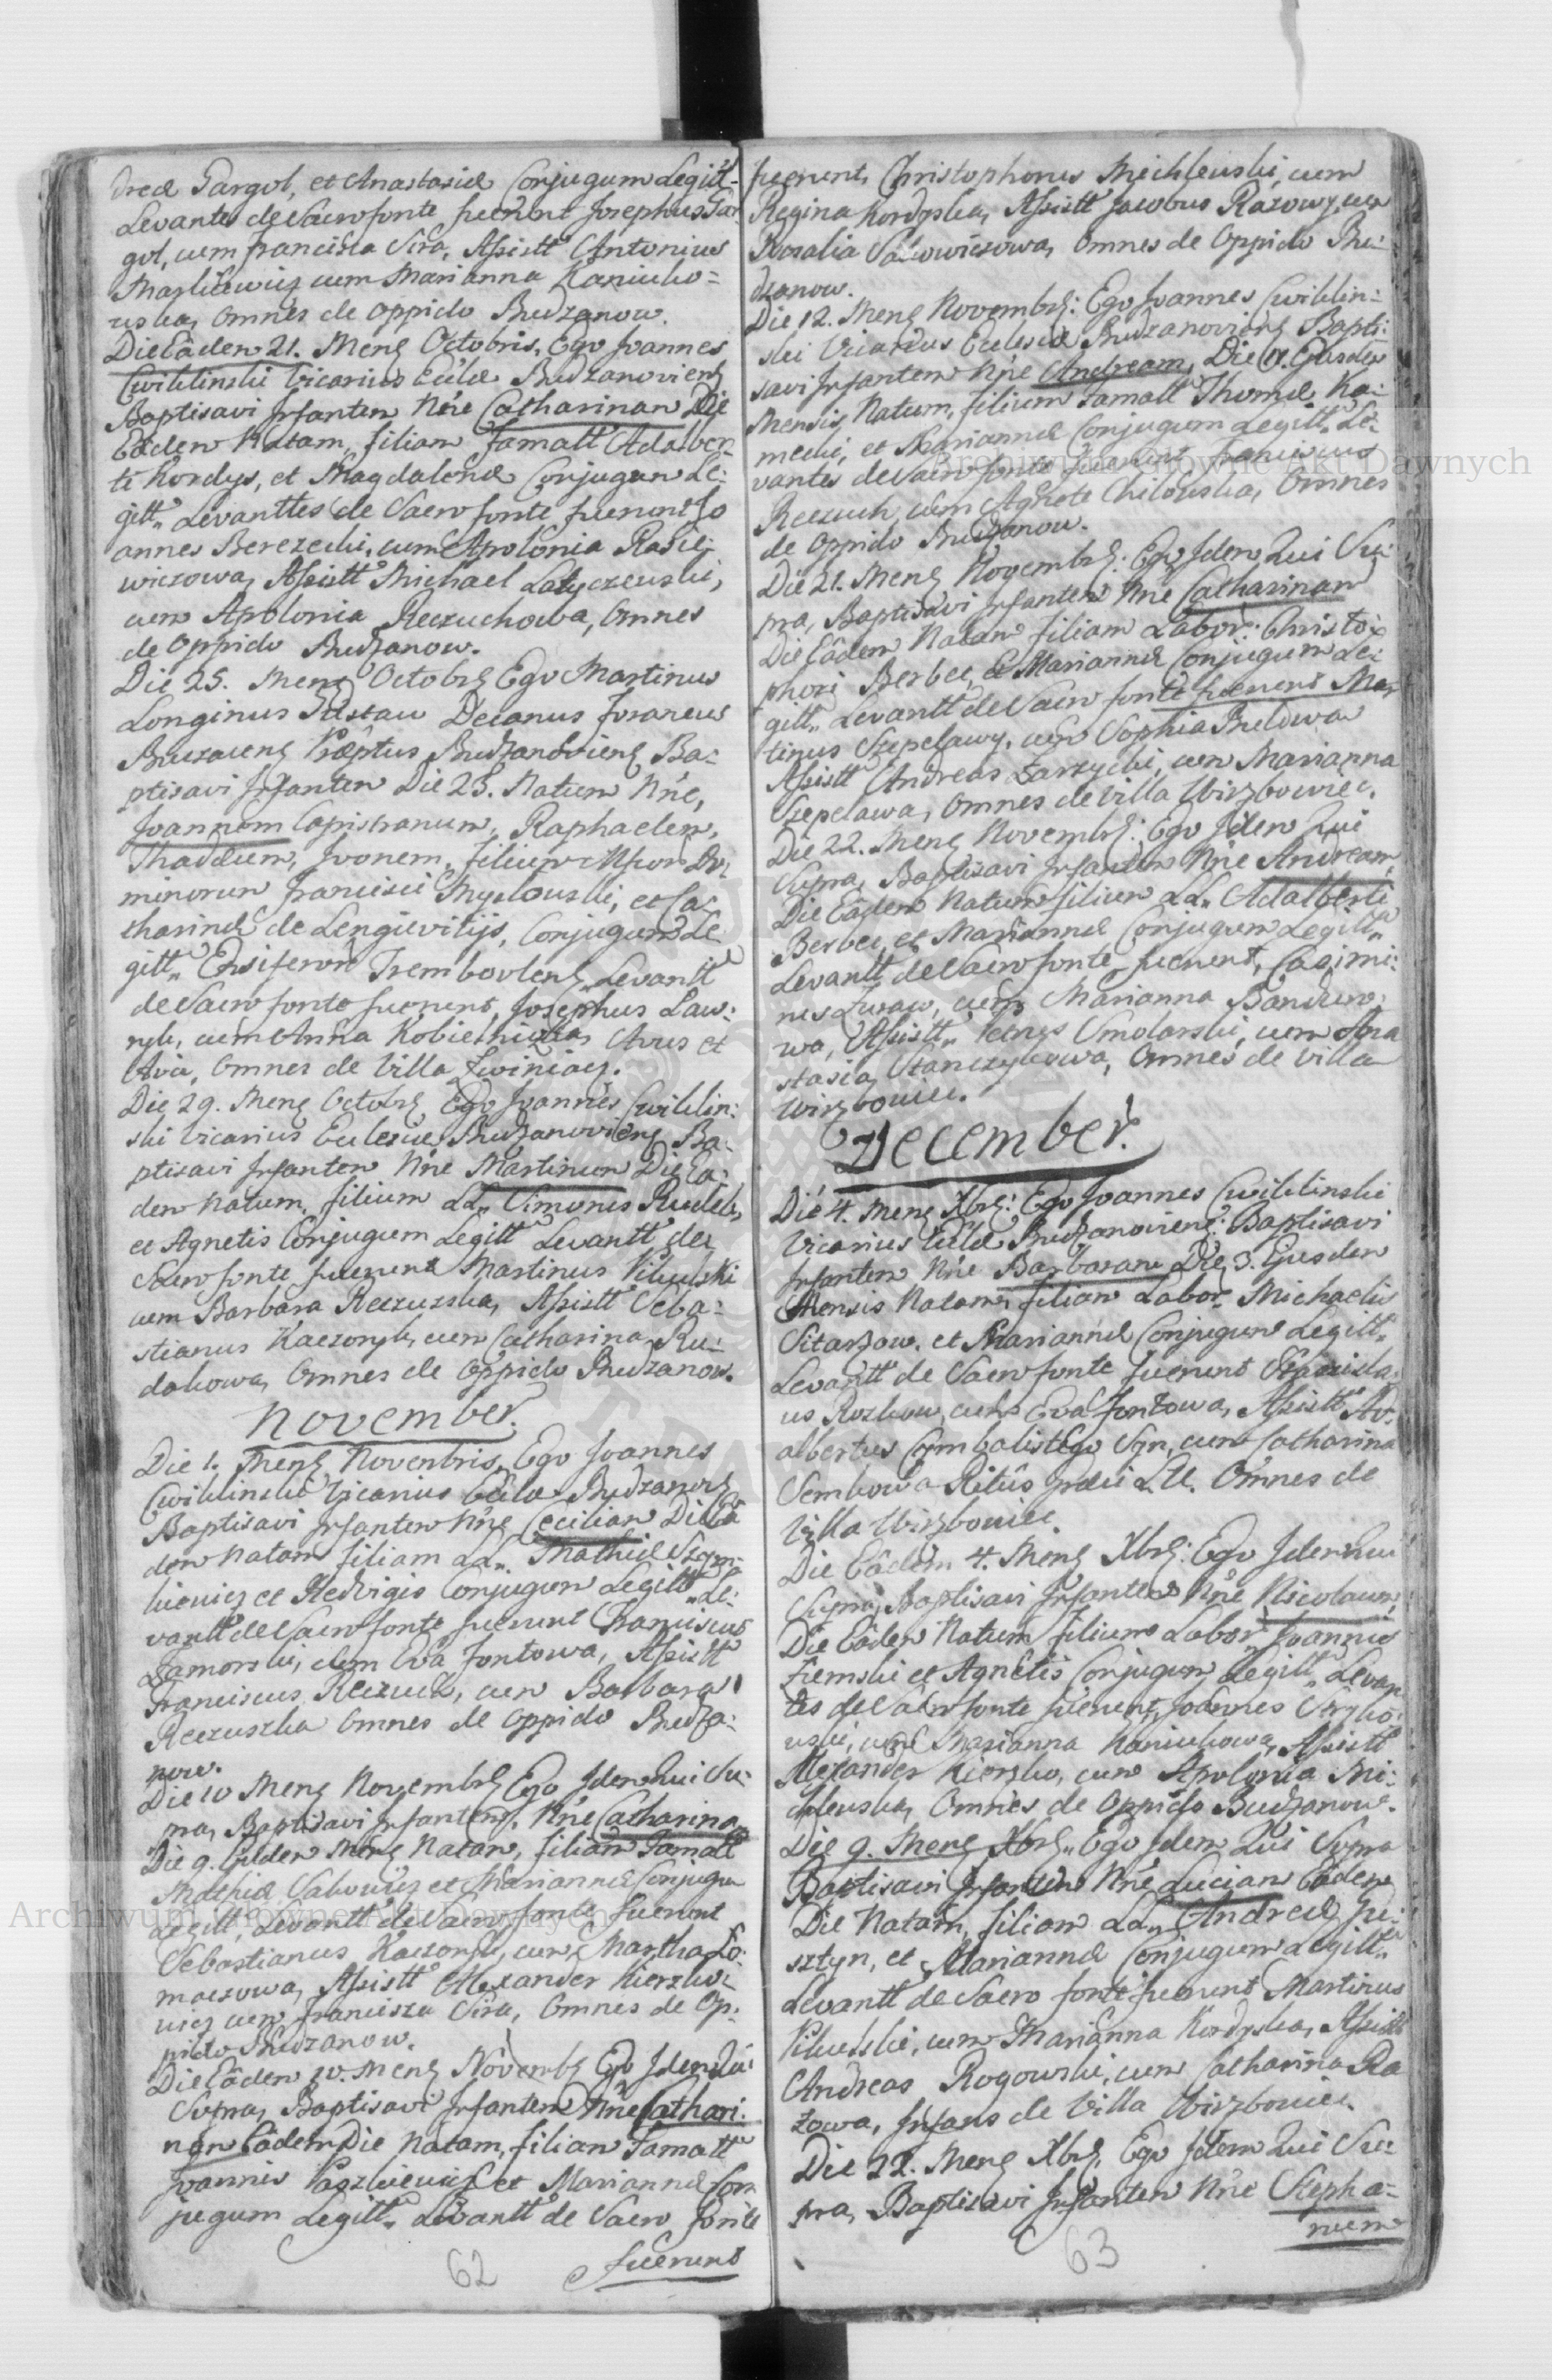 dreæ Gargol, et Anastasiæ Conjugum Legitt
Levantes de Sacro fonte fuerunt Josephus Gar
gol, cum Francisca Sira, Assistt Antonius
cum Marianna Kaniuko=
wska, Omnes de Oppido Budzanow.
Die Eâdem 21. Mens Octobris, Ego Joannes
Cwiklinski Vicarius Eccłæ Budzanoviens
Baptisavi Infantem Nne Catharinam Die
Eâdem Natam, filiam Famatt Adalber-
ti Kordys, et Magdalenæ Conjugum Le-
gitt. Levanttes de Sacro fonte fuerunt Jo
annes Berezecki, cum Apolonia Rasie-
wiczowa, Assistt Michael Latyczewski,
cum Apolonia Reczuchowa, Omnes
de Oppido Budzanow.
Die 25. Mens Octobrs Ego Martinus
Longinus Decanus Foraneus
Buczacens Præptus Budzanoviens Ba-
ptisavi Infantem Die 23. Natum Nne,
Joannem Capistranum, Raphaelem,
Thadeum, Ivonem, filium Do-
minorum Francisci et Ca-
tharinæ de Conjugum Le
gitt. Ensiferorum Trembovlens Levantt
de Sacro fonte fuerunt, Josephus Law-
ryk, cum Anna Avus et
Avia, Omnes de Villa Zwiniacz.
Die 29. Mens Octobrs Ego Joannes Cwiklin-
ski Vicarius Ecclesiæ Budzanoviens Ba-
ptisavi Infantem Nne Martinum Die Eâ-
dem Natum, filium LL. Simonis Rudek,
et Agnetis Conjugum Legitt Levantt de
Sacro fonte fuerunt Martinus Pikulski
cum Barbara Reczuszka, Assistt Seba-
stianus Kaczoryk, cum Catharina Ru-
dakowa, Omnes de Oppido Budzanow.
November.
Die 1. Mens Novembris, Ego Joannes
Cwiklinski Vicarius Eccłæ Budzanovs
Baptisavi Infantem Nne Ceciliam Die Eâ
dem Natam filiam LL. Mathiæ Szym-
kiewicz et Hedvigis Conjugum Legitt. Le-
vantt de Sacro fonte fuerunt Franciscus
Zamorski, cum Eva Fontowa, Assistt
Franciscus Reczuch, cum Barbara
Reczuszka Omnes de Oppido Budza-
now.
Die 10 Mens Novembrs Ego Idem Qui Su-
pra, Baptisavi Infantem, Nne Catharina
Die 9. Ejusdem Mens Natam, filiam Famatt
Mathiæ Sakowicz et Mariannæ Conjugu
Legitt, Levantt de Sacro fonte fuerunt
Sebastianus Kaczoryk, cum Martha To-
maszowa, Assistt Alexander Kierzko-
wicz cum Francisca Sira, Omnes de Op-
pido Budzanow.
Die Eâdem 10. Mens Novembr Ego Idem Qui
Supra, Baptisavi Infantem Nne Cathari-
nam Eâdem Die Natam, filiam Famatt
Joannis Paszkiewicz et Mariannæ Con
jugum Legitt. Levantt de Sacro fonte
fuerunt
62
fuerunt, Christophorus Michlewski, cum
Regina Kordyska, Assistt Jacobus Razowy, cum
Rosalia Sakowiczowa, Omnes de Oppido Bu-
dzanow.
Die 12. Mens Novembrs: Ego Joannes Cwiklin-
ski Vicarius Ecclesiæ Budzanoviens Bapti-
savi Infantem Nne Andream, Die 11. Ejusdem
Mensis Natum, filium Famatt Thomæ Ka-
mecki, et Mariannæ Conjugum Legitt. Le-
vantes de Sacro fonte fuerunt Franciscus
Reczuch cum Agnete Chilowska, Omnes
de Oppido Budzanow.
Die 21. Mens Novembrs: Ego Idem Qui Su-
pra, Baptisavi Infantem Nne Catharinam
Die Eâdem Natam filiam Labor: Christo-
phori Berbec, et Mariannæ Conjugum Le-
gitt. Levantt de Sacro fonte fuerunt Mar
tinus Szepelawy, cum Sophia Budowa
Assistt Andreas Zarzycki, cum Marianna
Szepelawa, Omnes de Villa Wirzbowiec.
Die 22. Mens Novembrs: Ego Idem Qui
Supra, Baptisavi Infantem Nne Andream,
Die Eâdem Natum filium LL. Adalberti
Berbec, et Mariannæ Conjugum Legitt.
Levantt de Sacro fonte fuerunt, Casimi-
rus Zuraw, cum Marianna Banduro-
wa, Assistt. Petrus Smolarski, cum Ana
stasia Stanczykowa, Omnes de Villa
Wirzbowiec.
December.
Die 4. Mens Xbrs: Ego Joannes Cwiklinski
Vicarius Eccłæ Budzanoviens: Baptisavi
Infantem Nne Barbaram Die 3. Ejusdem
Mensis Natam, filiam Labor. Michaelis
Sitarzow. et Mariannæ Conjugum Legitt.
Levantt de Sacro fonte fuerunt Stanisla-
us Rozkow, cum Eva Fontowa, Assistt Ad-
albertus Cymbalistego Syn, cum Catharina
Semkowa Ritûs Græci L.U. Omnes de
Villa Wirzbowiec.
Die Eâdem 4. Mens Xbrs: Ego Idem Qui
Supra, Baptisavi Infantem Nne Nicolaum,
Die Eâdem Natum filium Labor. Joannis
Ziemski et Agnetis Conjugum Legitt. Levan
tes de Sacro fonte fuerunt, Joannes
wski, cum Marianna Kaniukowa, Assistt
Alexander Kierzko, cum Apolonia Mi-
chlewska, Omnes de Oppido Budzanow.
Die 9. Mens Xbrs. Ego Idem Qui Supra
Baptisavi Infantem Nne Luciam Eâdem
Die Natam, filiam LL. Andreæ Ju-
sztyn, et Mariannæ Conjugum Legitt.
Levantt de Sacro fonte fuerunt Martinus
Pikulski, cum Marianna Kordyska, Assistt
Andreas Rogowski, cum Catharina Ra
zowa, Infans de Villa Wirzbowiec.
Die 22. Mens Xbrs. Ego Idem Qui Su-
pra, Baptisavi Infantem Nne Stepha-
num
63
Archiwum Główne Akt Dawnych
Archiwum Główne Akt Dawnych